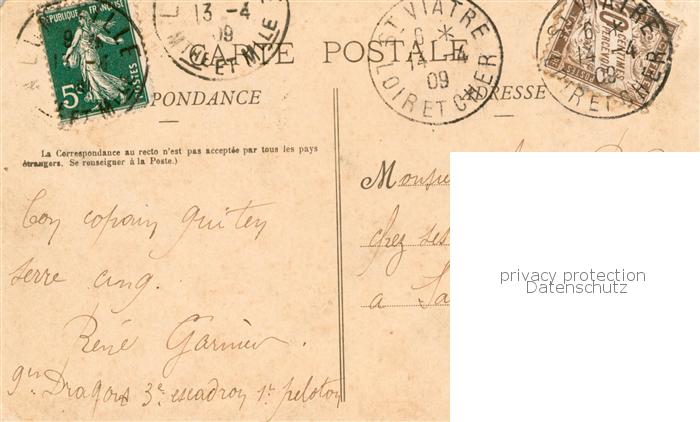 RÉPUBLIQUE FRANÇAISE
POSTES
5
13 -4
09
M ET M LE
CARTE POSTALE
ST VIATRE
6 *
14 -4
09
LOIR ET CHER
6
14 4
09
CENTIMES
PONDANCE
ADRESSE
La Correspondance au recto n'est pas acceptée par tous les pays
étrangers. Se renseigner à la Poste.)
Ton copain qui t'en
serre cinq.
René Garnier.
9me Dragons 3e escadron 1er peloton
chez ses
a
privacy protection
Datenschutz